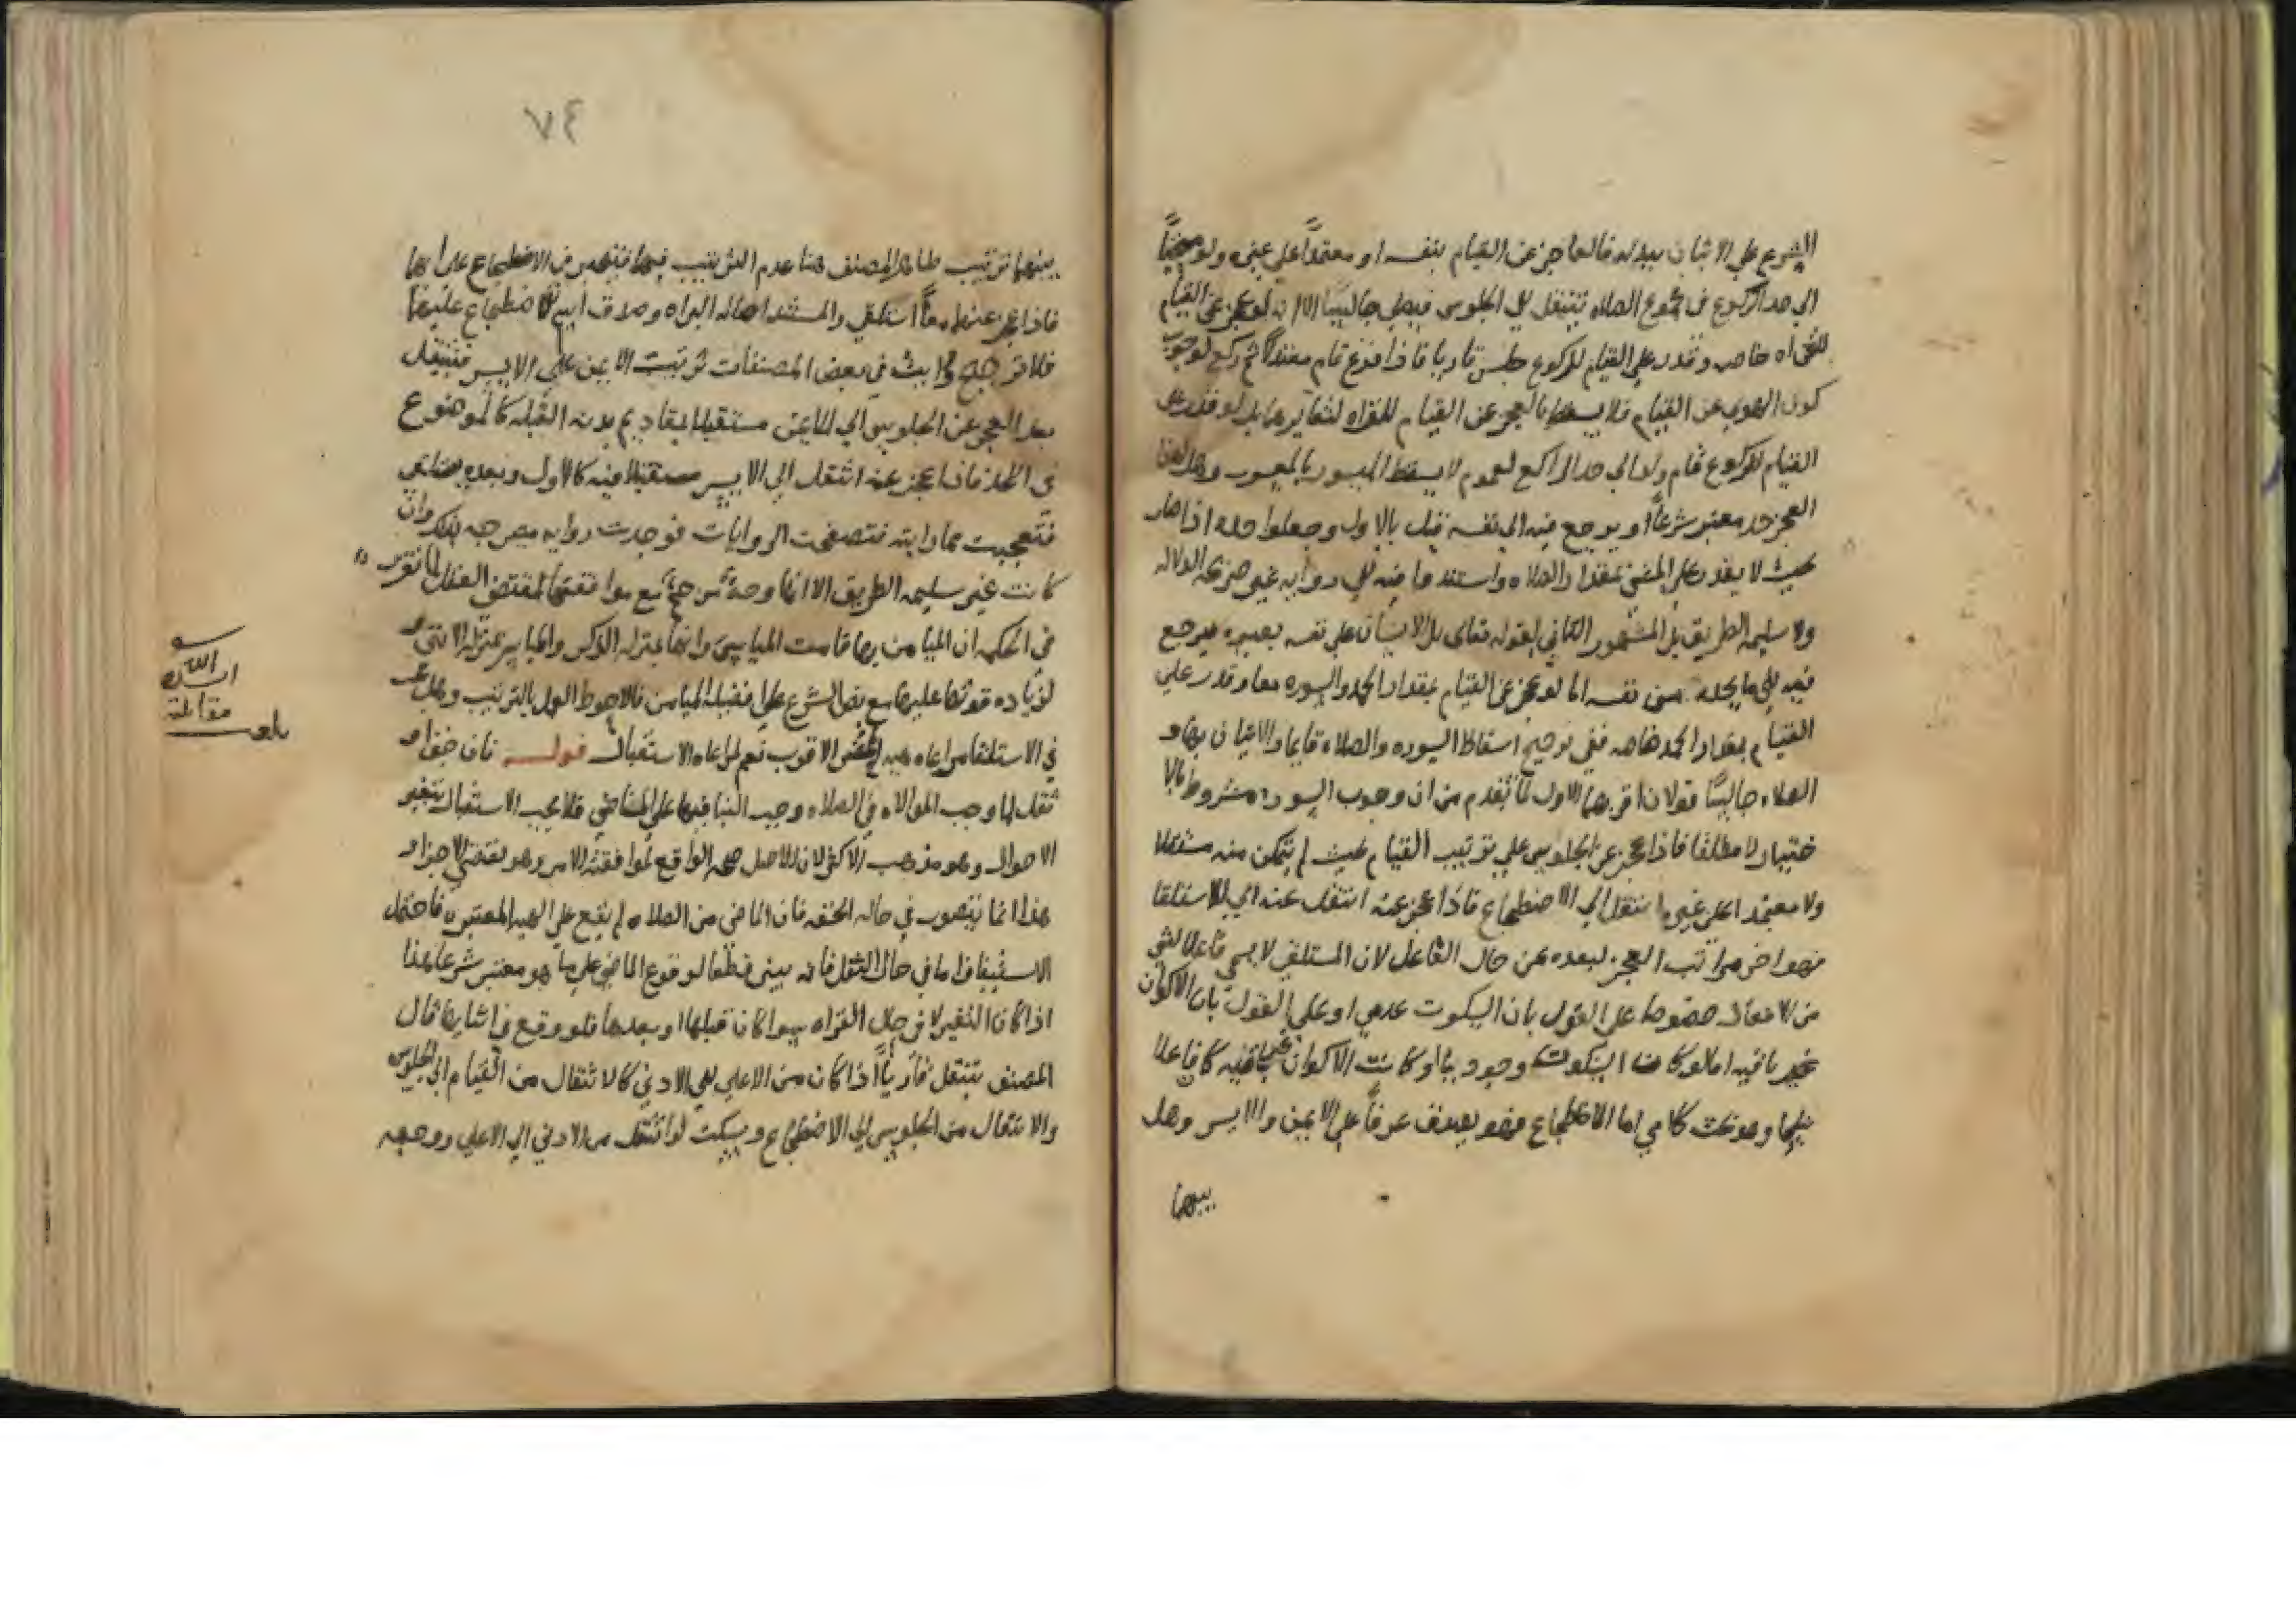 الشروع علي الاتيان ببدله فالعاجز عن القيام بنفسه او معتمداً علي غيره ولو منحنياً
الي حد الركوع في مجموع الصلاه ينتقل الي الجلوس فيصلي جالساً الا انه لو عجز عن القيام
للقراه خاصه وقدر علي القيام للركوع جلس قاريا فاذا فرغ قام معتدلا ثم ركع لوجوب
كون الهوي عن القيام فلا يسقط بالعجز عن القيام للقراه لتغايرهما بل لو قدر علي
القيام للركوع قام ولو الي حد الراكع لعموم لا يسقط الميسور بالمعسور وهل لهذا
العجز حد معتبر شرعاً او يرجع فيه الي نفسه قيل بالاول وجعلوا حده اذا صار
بحيث لا يقدر علي المشي بمقدار الصلاه واستندوا فيه الي روايه غير صريحه الدلاله
ولا سليمه الطريق بل المشهور الثاني لقوله تعالي بل الانسان علي نفسه بصيره فيرجع
فيه الي ما يجده من نفسه اما لو عجز عن القيام بمقدار الحمد والسوره معا وقدر علي
القيام بمقدار الحمد خاصه ففي ترجيح اسقاط السوره والصلاه قايما والاتيان بها و
الصلاه جالساً قولان اقربهما الاول لما تقدم من ان وجوب السوره مشروط بالا
ختيار لا مطلقا فاذا عجز عن الجلوس علي ترتيب القيام بحيث لم يتمكن منه مستقلا
ولا معتمدا علي غيره انتقل الي الاضطجاع فاذا عجز عنه انتقل عنه الي الاستلقا
فهو اخر مراتب العجز لبعده عن حال الفاعل لان المستلقي لا يسمي فاعلا لشي
من الافعال خصوصا علي القول بان السكوت عدمي او علي القول بان الاكوان
غير باقيه اما لو كان السكوت وجوديا او كانت الاكوان باقيه كان فاعلا
فيهما وهو بحث كلامي اما الاضطجاع فهو يصدق عرفاً علي الايمن والايسر وهل
بينهما
٧٤
بينهما ترتيب ظاهر المصنف هنا عدم الترتيب فيهما فيتخير في الاضطجاع علي ايهما
فاذا عجز عنهما معاً استلقي والمستند اصاله البراه وصدق اسم الاضطجاع عليهما
فلا ترجيح ورايت في بعض المصنفات ترتيب الايمن علي الايسر فينتقل
بعد العجز عن الجلوس الي الايمن مستقبلا بمقاديم بدنه القبله كالموضوع
في اللحد فاذا عجز عنه انتقل الي الايسر مستقبلا فيه كالاول وبعده يستلقي
فتعجبت مما رايته فتصفحت الروايات فوجدت روايه مصرحه بذلك وان
كانت غير سليمه الطريق الا انها مرجحه مع موافقتها لمقتضي العقل لما تقرر
في الحكمه ان الميامن بها قامت المياسر وانها بمنزله الذكر والمياسر بمنزله الانثي و
لزياده قوتها عليها مع نص الشرع علي افضليه الميامن فالاحوط العمل بالترتيب وهل يجب
في الاستلقا مراعاه الاقرب نعم لمراعاه الاستقبال قوله فان خف او
ثقل لما وجب الموالاه في الصلاه وجب البنا فيها علي الماضي فلا يجب الاستقبال بتغير
الاحوال وهو مذهب الاكثر لان الاصل صحه الواقع لموافقته الامر وهو يقتضي الاجزا و
هذا انما يتصور في حاله الخفه فان الماضي من الصلاه لم يقع علي الهيه المعتبره فاحتمل
الاستيناف اما في حال الثقل فانه يبني قطعا لوقوع الماضي علي ما هو معتبر شرعا هذا
اذا كان التغير لا في حال القراه سوا كان قبلها او بعدها فلو وقع في اثنايها قال
المصنف ينتقل قارياً اذا كان من الاعلي الي الادني كالانتقال من القيام الي الجلوس
والانتقال من الجلوس الي الاضطجاع ويسكت لو انتقل من الادني الي الاعلي ووجهه
بلغت
مقابلة
ايده الله